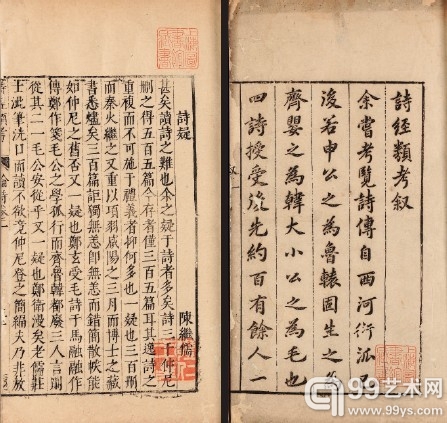 詩經類考叙
余嘗考覽詩傳自西河衍派
後若申公之為魯轅固生之為
齊嬰之為韓大小公之為毛也
四詩授受後先約百有餘人一
詩疑
陳繼儒
甚矣讀詩之難也余之疑于詩者多矣詩三千仲尼
刪之得五百五篇今存者僅三百五篇耳其逸詩之
重複而不可施于禮義者抑何多也一疑也三百刪
而秦火繼之又重以項羽咸陽之三月而博士之藏
書悉燼矣三百篇記獨無恙即無恙而錯簡散帙能
如仲尼之舊否又一疑也鄭玄受毛詩于馬融融作
傳鄭作箋毛公之學孤行而齊魯韓都廢三人言則
從其二一毛公安從乎又一疑也鄭衛漫矣老儒莊
士泚筆洗口而讀不欲竟仲尼登之簡編夫乃非放
99艺术网
www.99ys.com